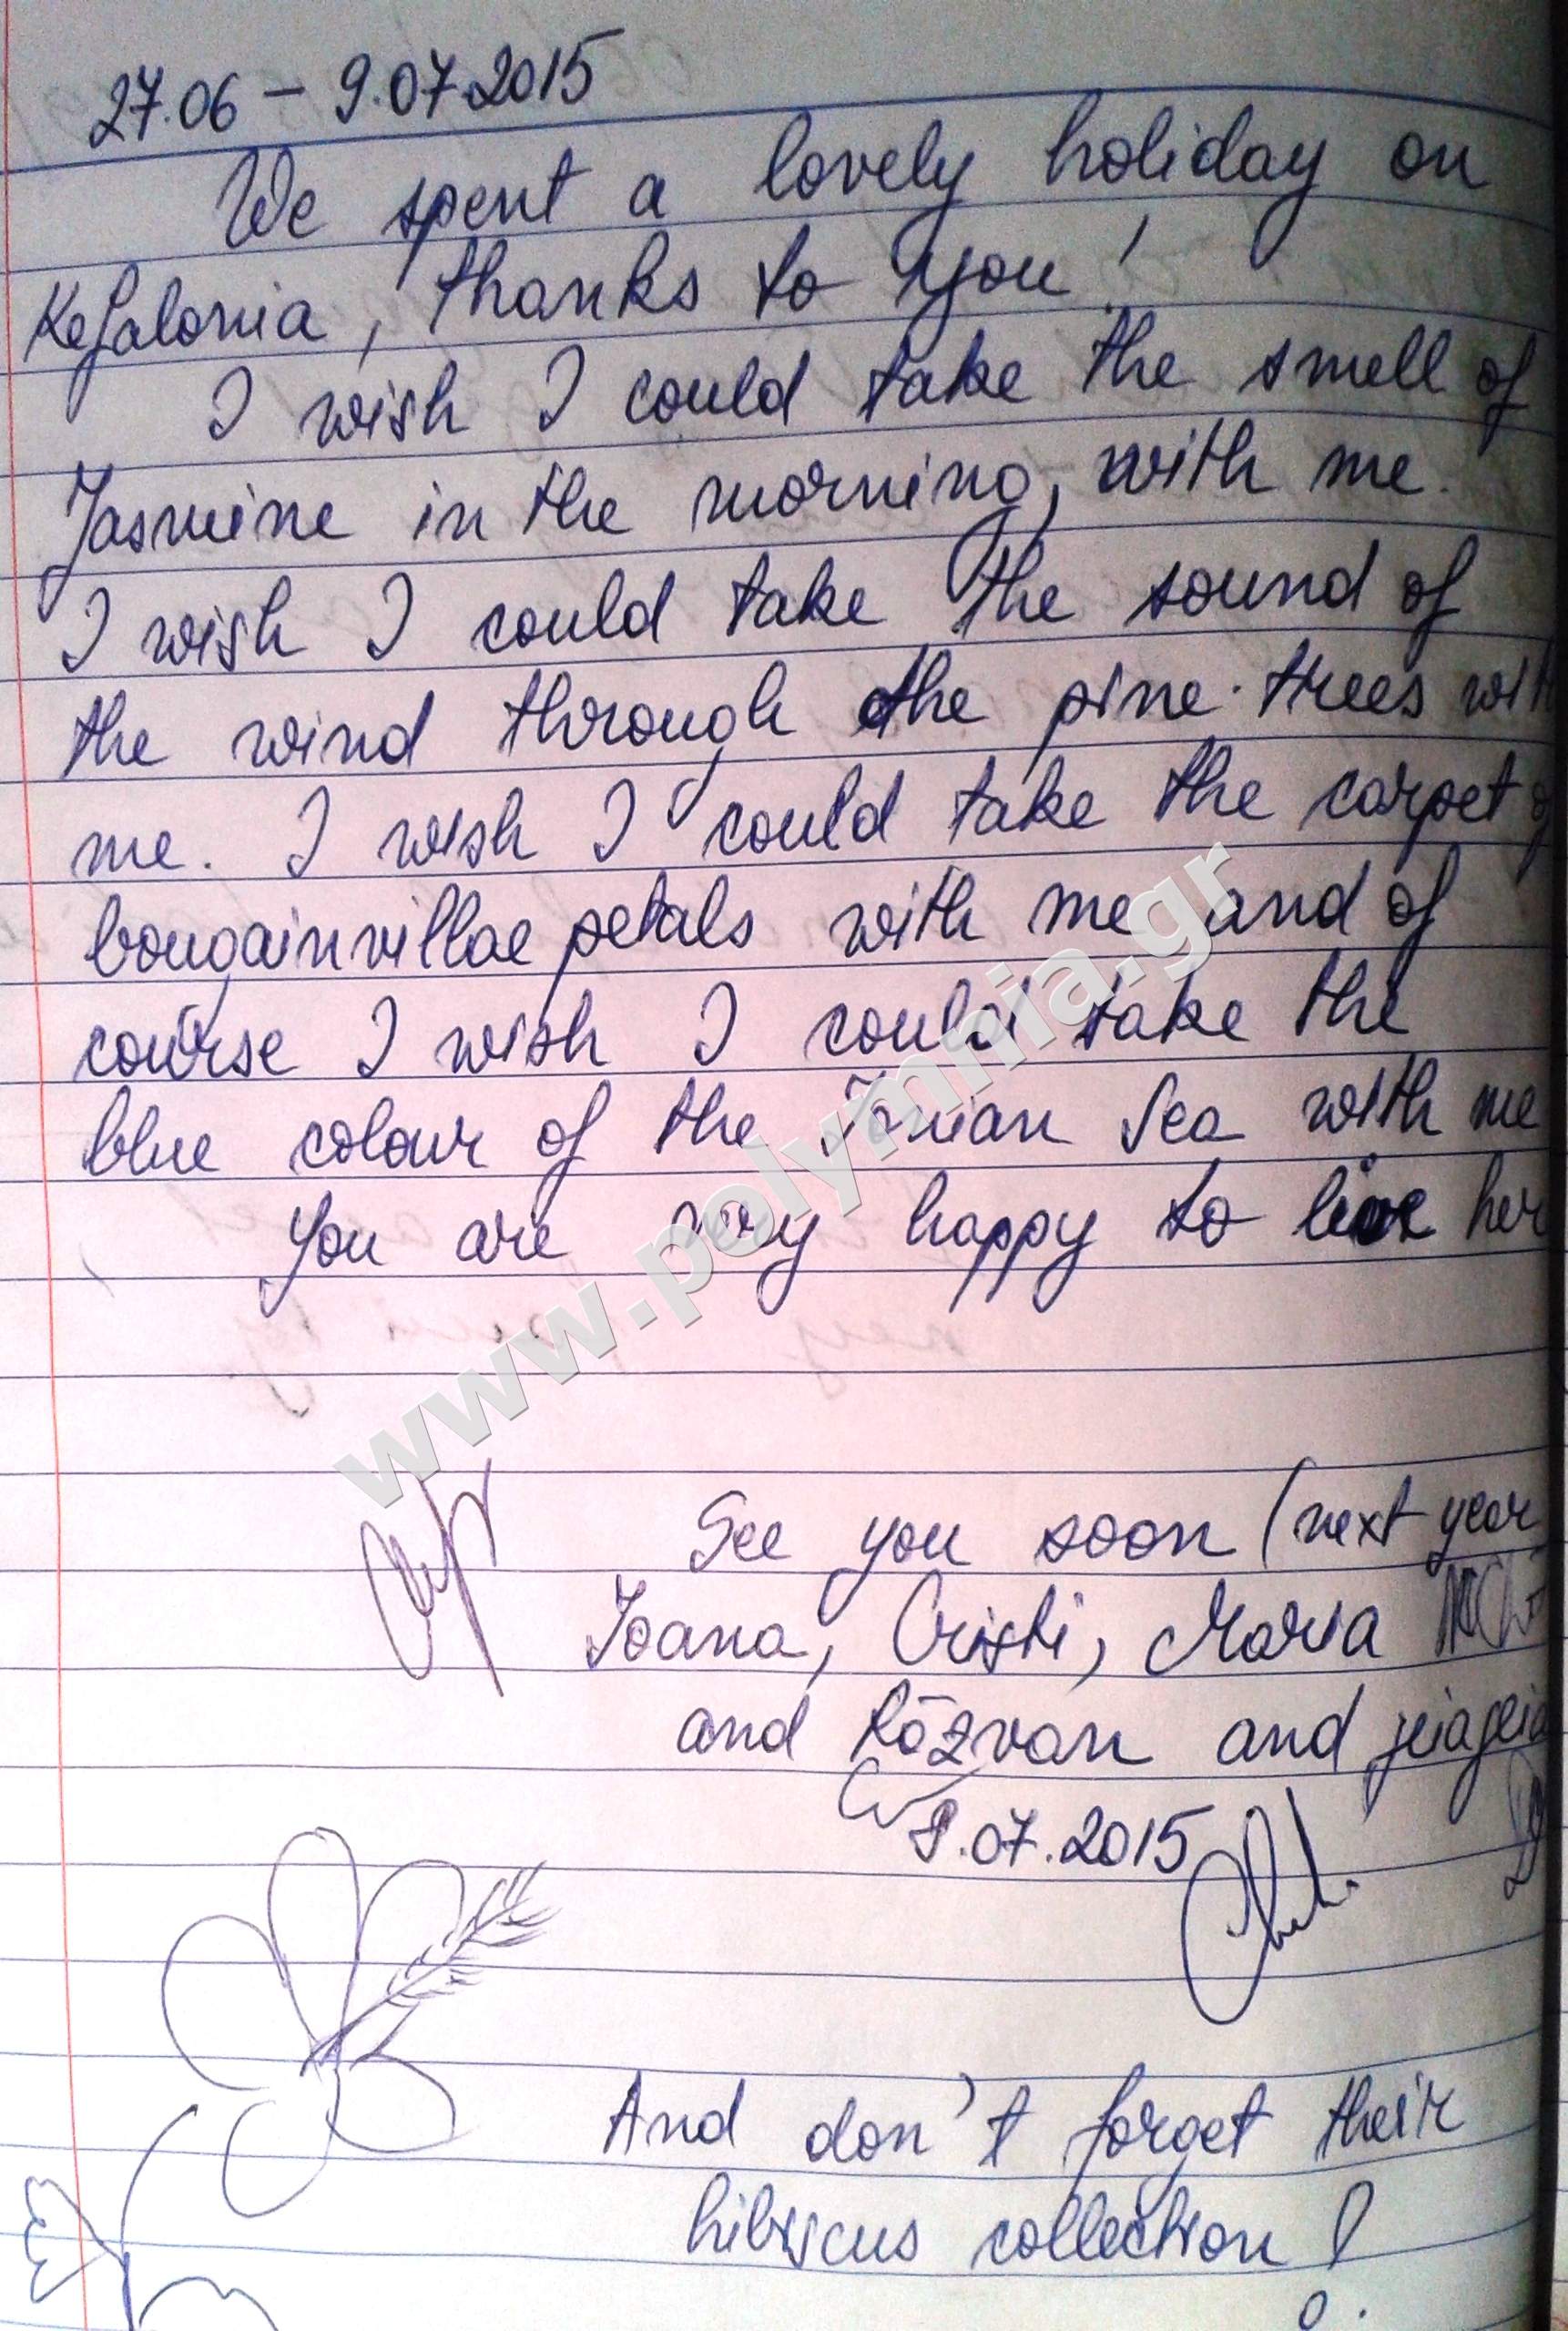 27.06 – 9.07.2015
We spent a lovely holiday on
Kefalonia, thanks to you!
I wish I could take the smell of
Jasmine in the morning, with me.
I wish I could take the sound of
the wind through the pine-trees with
me. I wish I could take the carpet of
bougainvillae petals with me and of
course I wish I could take the
blue colour of the Ionian Sea with me
You are very happy to live her
www.polymnia.gr
See you soon (next year
Ioana, Cristi, Maria
and Răzvan and
9.07.2015
And don't forget their
hibiscus collection!